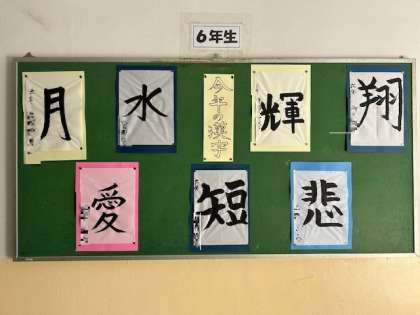 6年生
月
水
今年の漢字
輝
翔
愛
短
悲